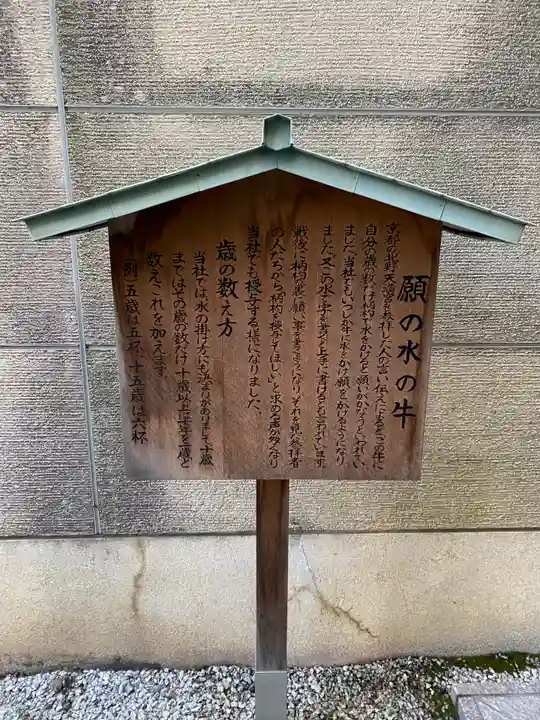 願の水の牛
京都の北野天満宮を参拝した人の言い伝えによるとこの牛に
自分の歳の数だけ柄杓で水をかけると願いがかなうといわれてい
ました当社でもいつしか牛に水をかけ願をかけるようになり
ました又この水で字を書くと上手に書けるとも言われています。
戦後に柄杓の裏に願い事を書くようになり、それを見た参拝者
の人たちから「柄杓を授与してほしい」と求める声が多くなり
当社でも授与する様になりました。
歳の数え方
当社では、水の掛け方にも決まりがありまして十歳
まではその歳の数だけ十歳以上は十年を一歳と
数えこれを加えます
(例)五歳は五杯、十五歳は六杯